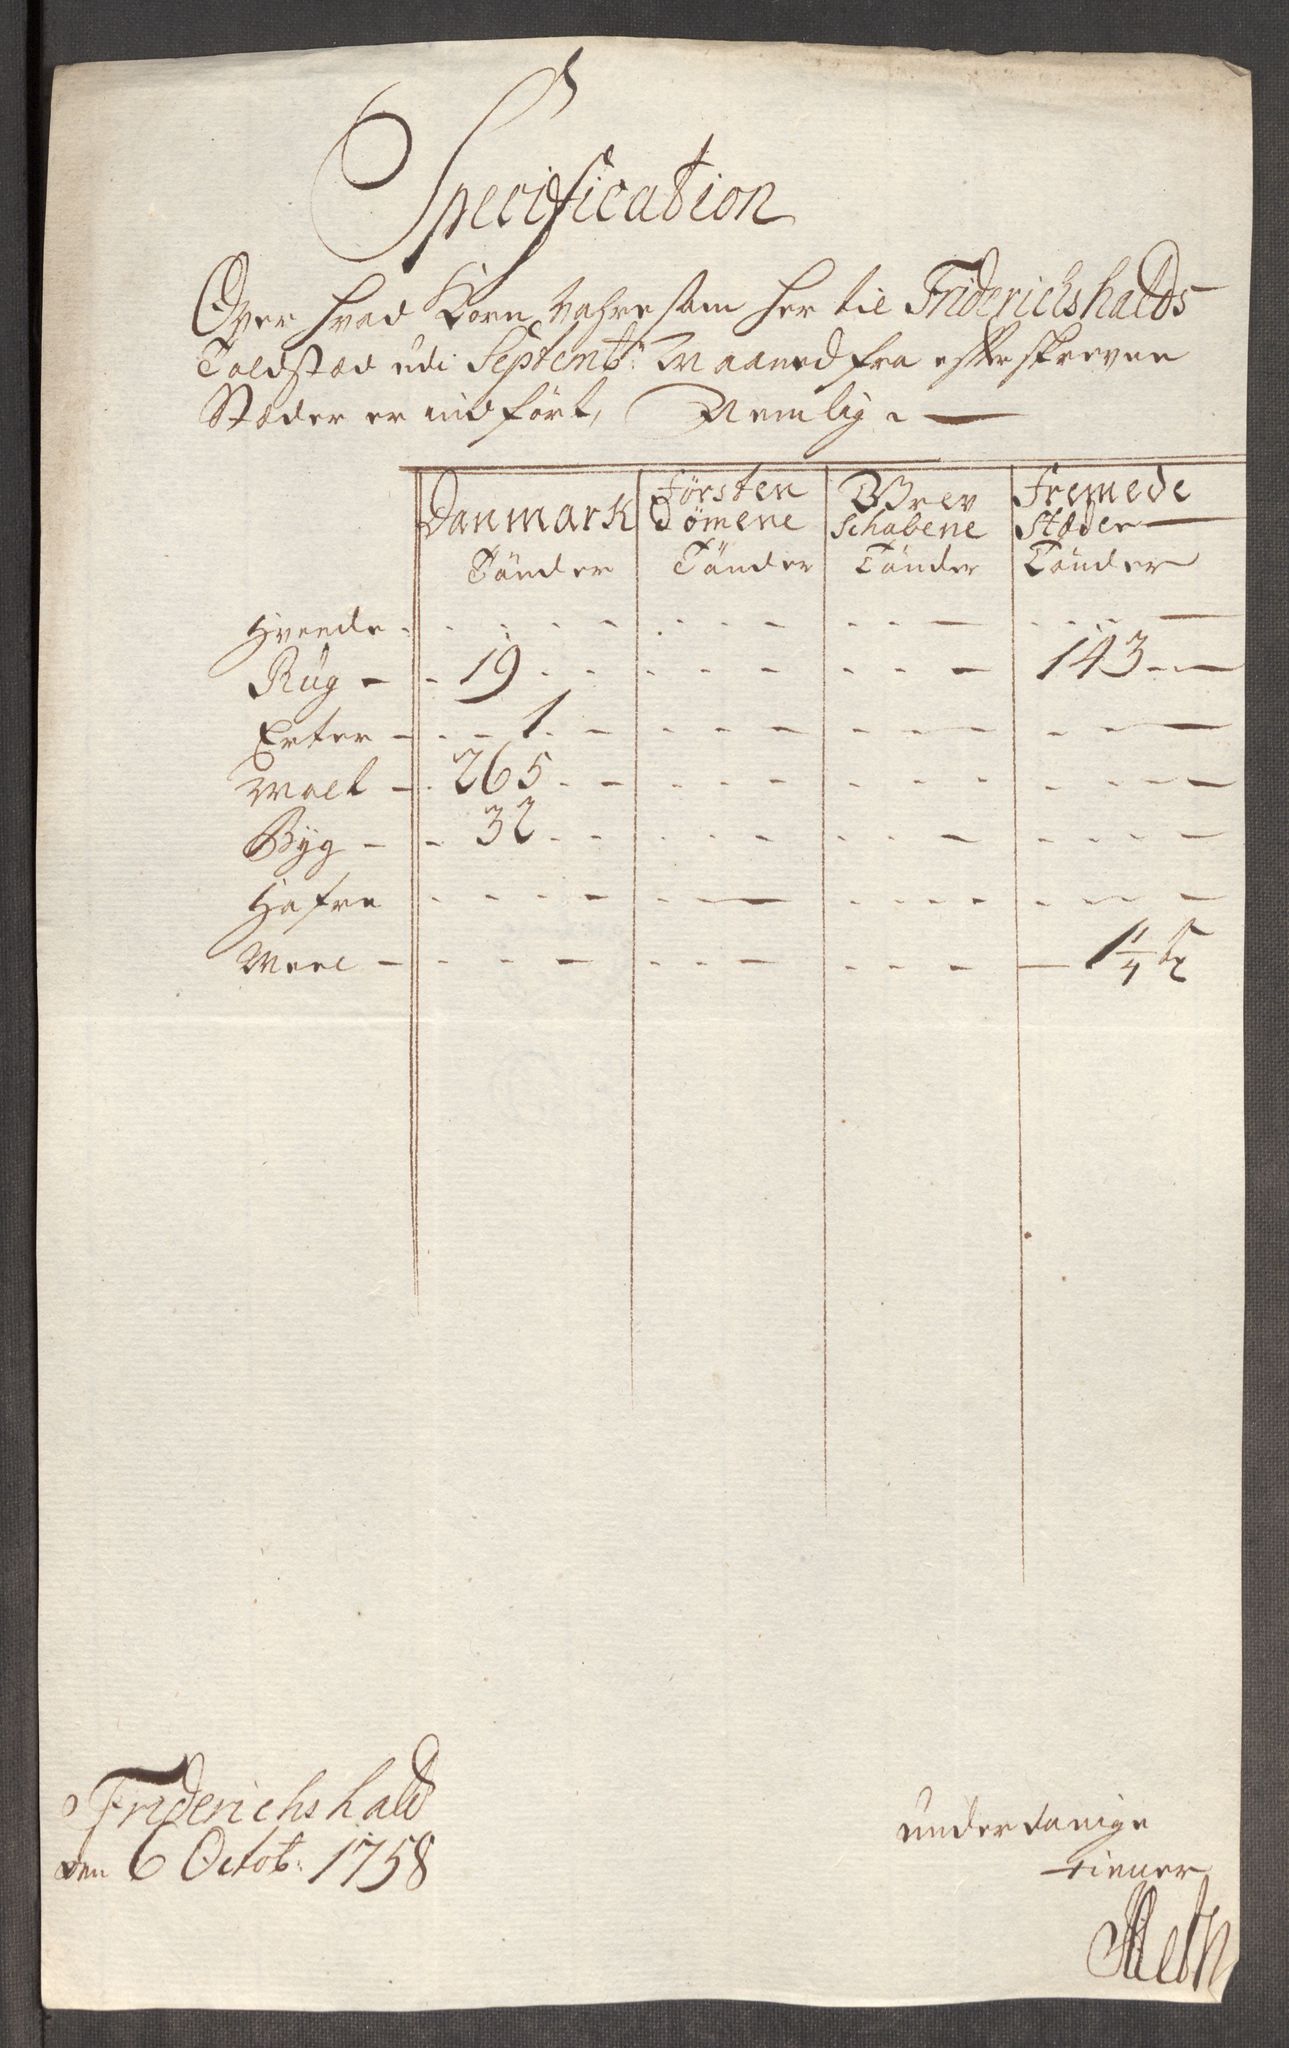 Specification
Over hvad Korn Vahre som her til Friderichshalds
Toldstæd udi Septembr: Maaned fra efterskrevne
Stæder er indført, Nemlig
Danmark Førsten Grev Fremede
Dømene Schabene Stæder
Tønder Tønder Tønder Tønder
Hveede
Rug 19 143
Erter 1
Malt 265
Byg 32
Hafre
Meel 1 1/4
Friderichshald
den 6 Octob: 1758
underdanige
tiener